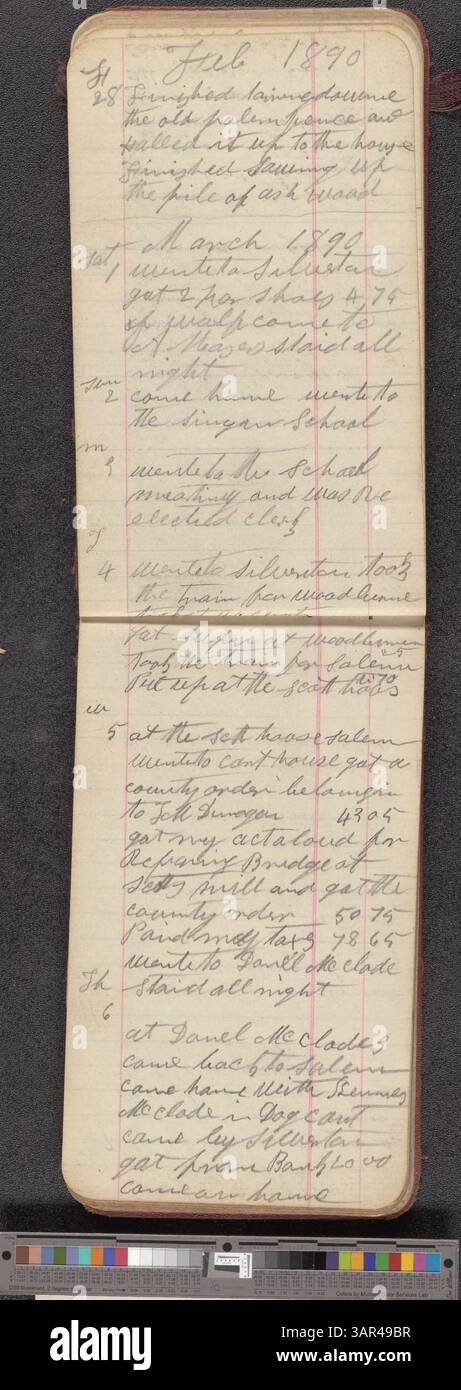 Feb 1890
28 Finished taringdowne
the old palempence and
halled it up to the house
Finished Sawing up
the pile of ash wood
March 1890
Sat
1 wente to Silverton
gat 2 par shoes 4 75
come to
staid all
night
Sun
2 come hume wente to
the singan School
m
3 wente to the School
meating and was Re
elected clerk
4 wente to Silverton took
the train for woodburne
gat Supper at woodburnn
took the train for Salem
Put up at the scott hoos
w
5 at the Scott hoose Salem
wente to cort house got a
county order belongin
to Dunagan 43 05
got my act aloud for
Refairing Bridge at
Scotts mill and got the
county order 50 75
Paind my taxs 78 65
wente to Danell McClode
Staid all night
Th
6
at Danel McClodes
came back to Salem
came hame With
McClode n Dog cart
came by Silverton
gat from Bank 20 00
came an hame
alamy
Image ID: 3AR49BR
www.alamy.com